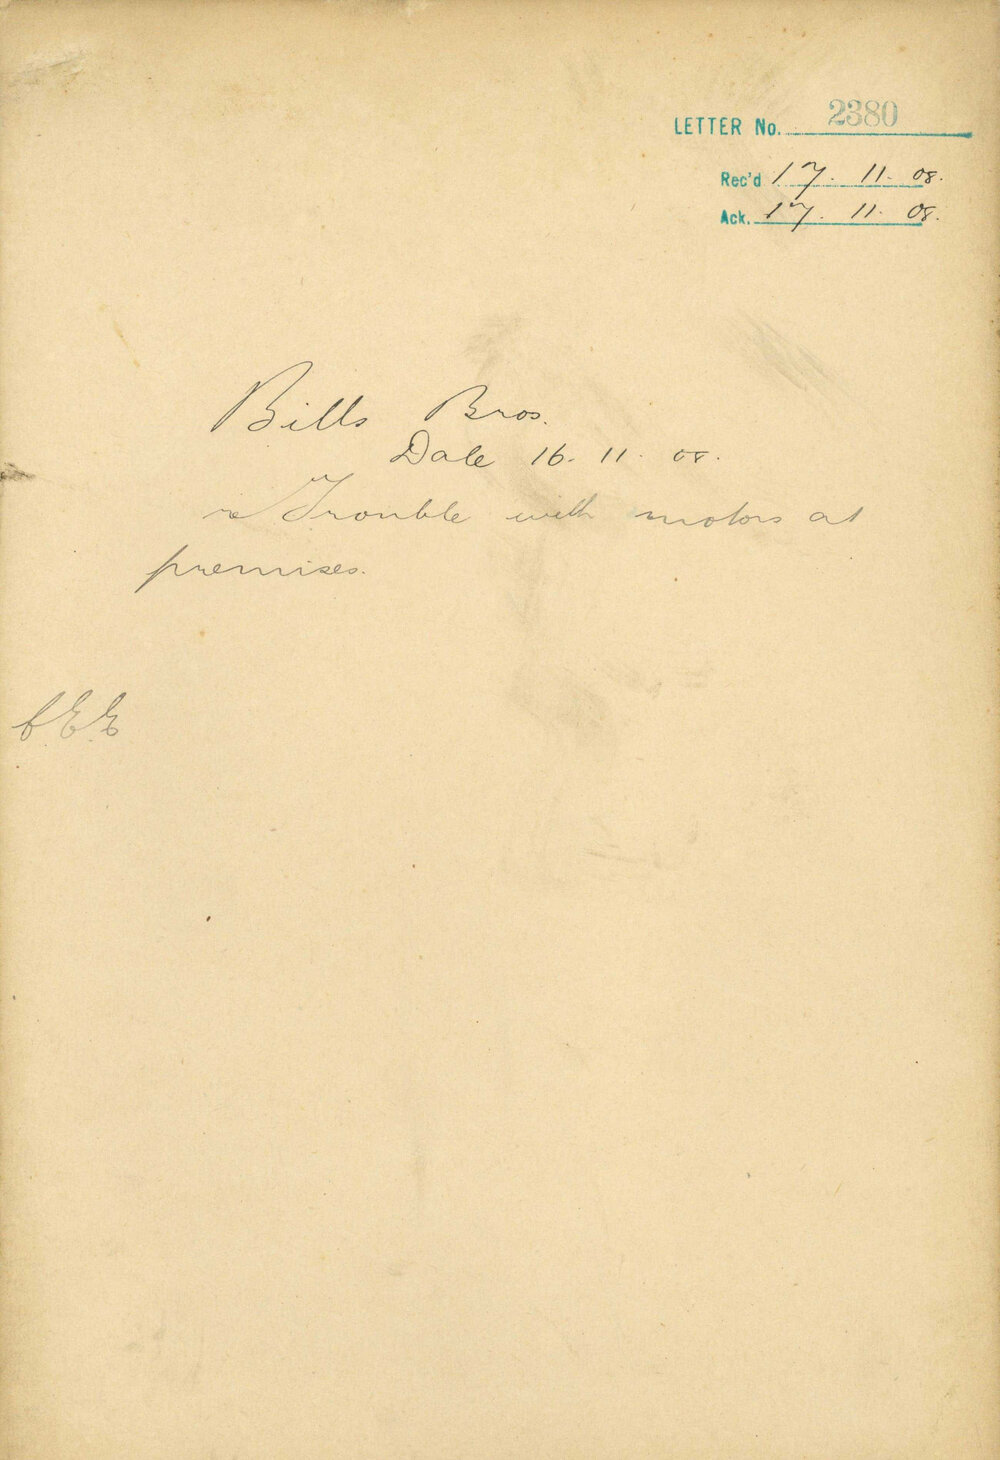 LETTER No. 2380
Rec'd 17. 11. 08.
Ack. 17. 11. 08.
Bills Bros.
Date 16. 11. 08.
re Trouble with motors at
premises.
CEE